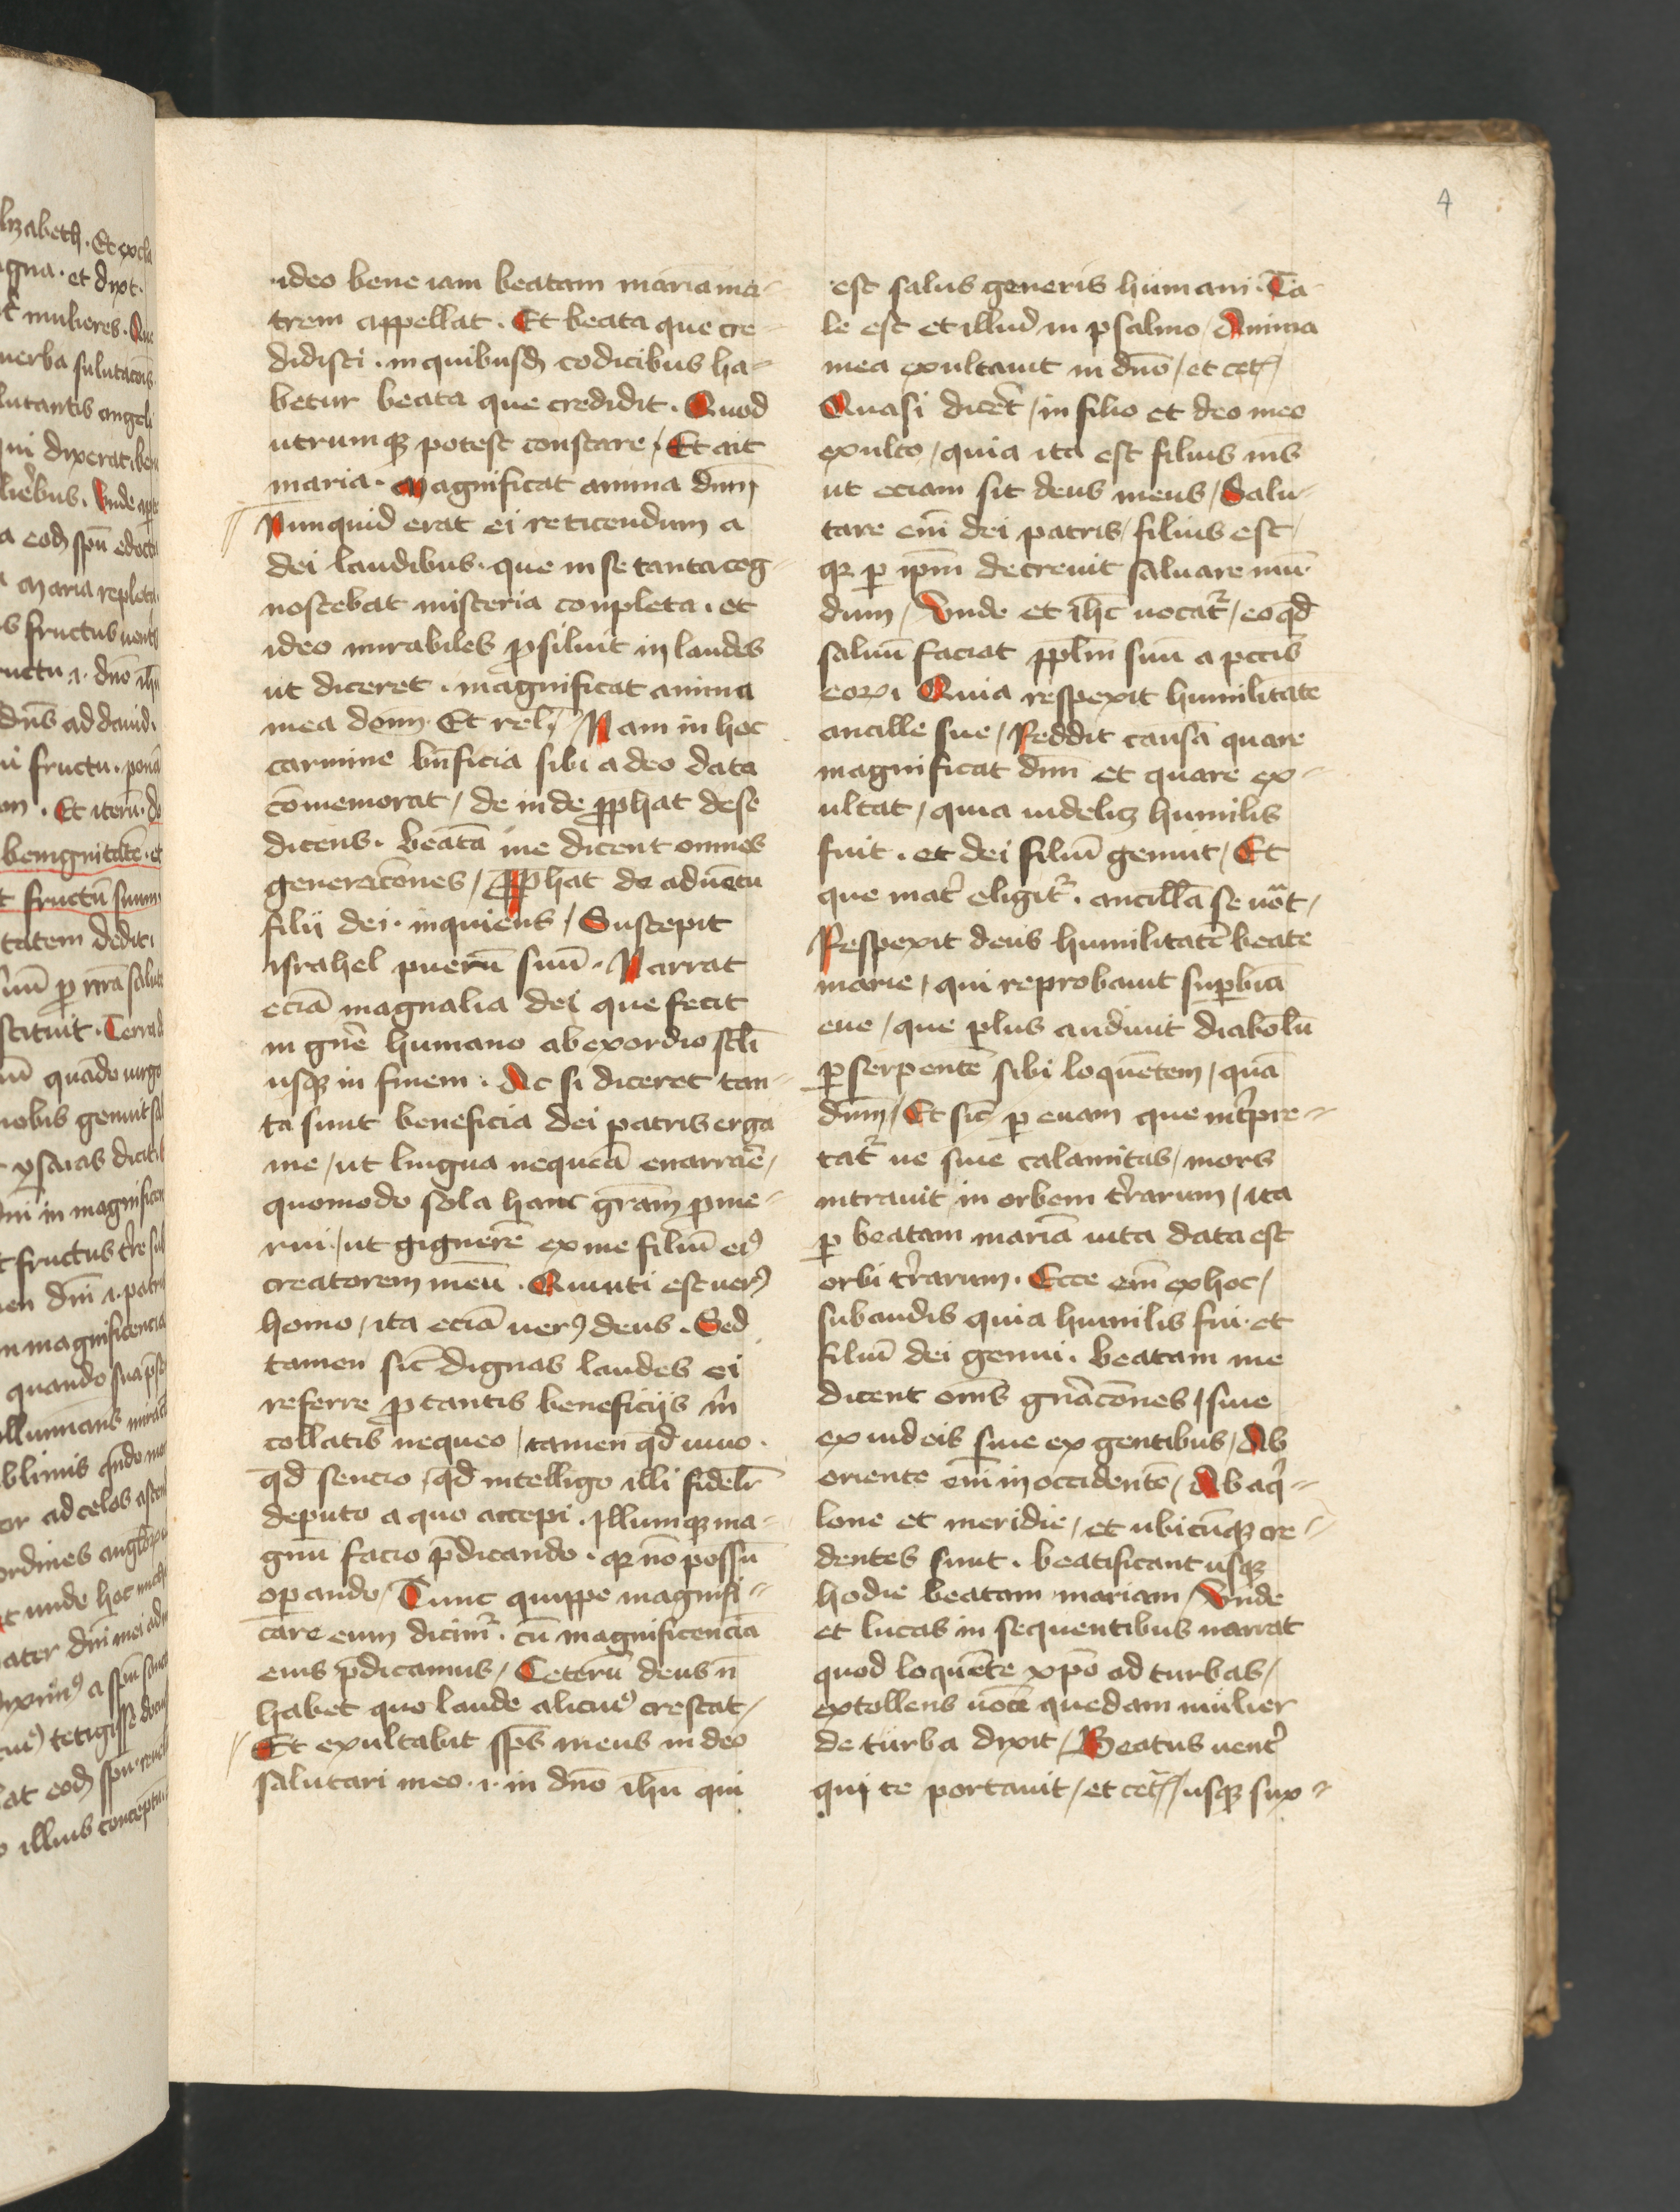 4
ideo bene iam beatam maria ma-
trem appellat. Et beata que cre-
didisti. in quibusd codicibus ha-
betur beata que credidit. Quod
utrumqꝫ potest constare / Et ait
maria. Magnificat anima dnm̄
Nunquid erat ei reticendum a
dei laudibus. que in se tanta cog-
noscebat misteria conpleta. et
ideo mirabiles ꝓsiluit in laudes
ut diceret. magnificat anima
mea dom̄. Et rel. / Nam in hoc
carmine bn̄ficia sibi a deo data
cōmemorat / de inde ꝓphat de se
dicens. beatā me dicent omnes
generacōnes / ꝓphat de aduētu
filii dei. inquiens / Suscepit
israhel puerū suū. Narrat
eciā magnalia dei que fecit
in gn̄e humano ab exordio scl̄i
usqꝫ in finem. Ac si diceret tan-
ta sunt beneficia dei patris erga
me / ut lingua nequeā enarrāe /
quomodo sola hanc grām ꝓme-
rui / ut gignerē ex me filiū eiꝰ
creatorem meū. Qui uti est uerꝰ
homo / ita eciā uerꝰ deus. Sed
tamen sic̄ dignas laudes ei
referre ꝓ tantis beneficijs m̄
collatis nequeo / tamen qd̄ uiuo.
qd̄ sencio / qd̄ intelligo illi fidelr̄
deputo a quo accepi. Illumqꝫ ma-
gnū facio p̄dicando. qꝛ nō possū
oꝑando / Tunc quippe magnifi-
care eum dicimꝰ. cū magnificencia
eius p̄dicamus / Ceterū deus n̄
habet quo laude alicuiꝰ crescat /
Et exultabit sp̄s meus in deo
salutari meo. i. in dn̄o ih̄u qui
est salus generis humani. Ta-
le est et illud in psalmo / Anima
mea exultauit in dn̄o / et cet̄
Quasi dicer̄t / in filio et deo meo
exulto / quia ita est filius m̄s
ut eciam sit deus meus / Salu-
tare em̄ dei patris / filius est /
qꝛ ꝑ ip̄m decreuit saluare mū-
dum / Vnde et ih̄c uocatᷣ / eo qd̄
saluū faciat ppl̄m suū a pctīs
eoꝝ. Quia respexit humilitatē
ancille sue / Reddit causā quare
magnificat dnm̄ et quare ex-
ultat / quia uidelicꝫ humilis
fuit. et dei filiū genuit / Et
que mat̄ eligitᷣ. ancillā se uōt /
Respexit deus humilitatē beate
marie / qui reprobauit suꝑbiā
eue / que plus audiuit diabolū
ꝑ serpentē sibi loquētem / quā
dnm̄ / Et sic ꝑ euam que int̄pre-
tatᷣ ue siue calamitas / mors
intrauit in orbem t̄rarum / ita
ꝑ beatam mariā uita data est
orbi t̄rarum. Ecce em̄ ex hoc /
subaudis quia humilis fui. et
filiū dei genui. beatam me
dicent om̄s gnr̄acōnes / siue
ex iudeis siue ex gentibus / Ab
oriente em̄ in occidentē / Ab aqͥ-
lone et meridie / et ubicūqꝫ cre-
dentes sunt. beatificant usqꝫ
hodie beatam mariam / Vnde
et lucas in sequentibus narrat
quod loquēte xp̄o ad turbas /
extollens uocē quedam mulier
de turba dixit / Beatus uent̄
qui te portauit / et cet̄ / usqꝫ sux-